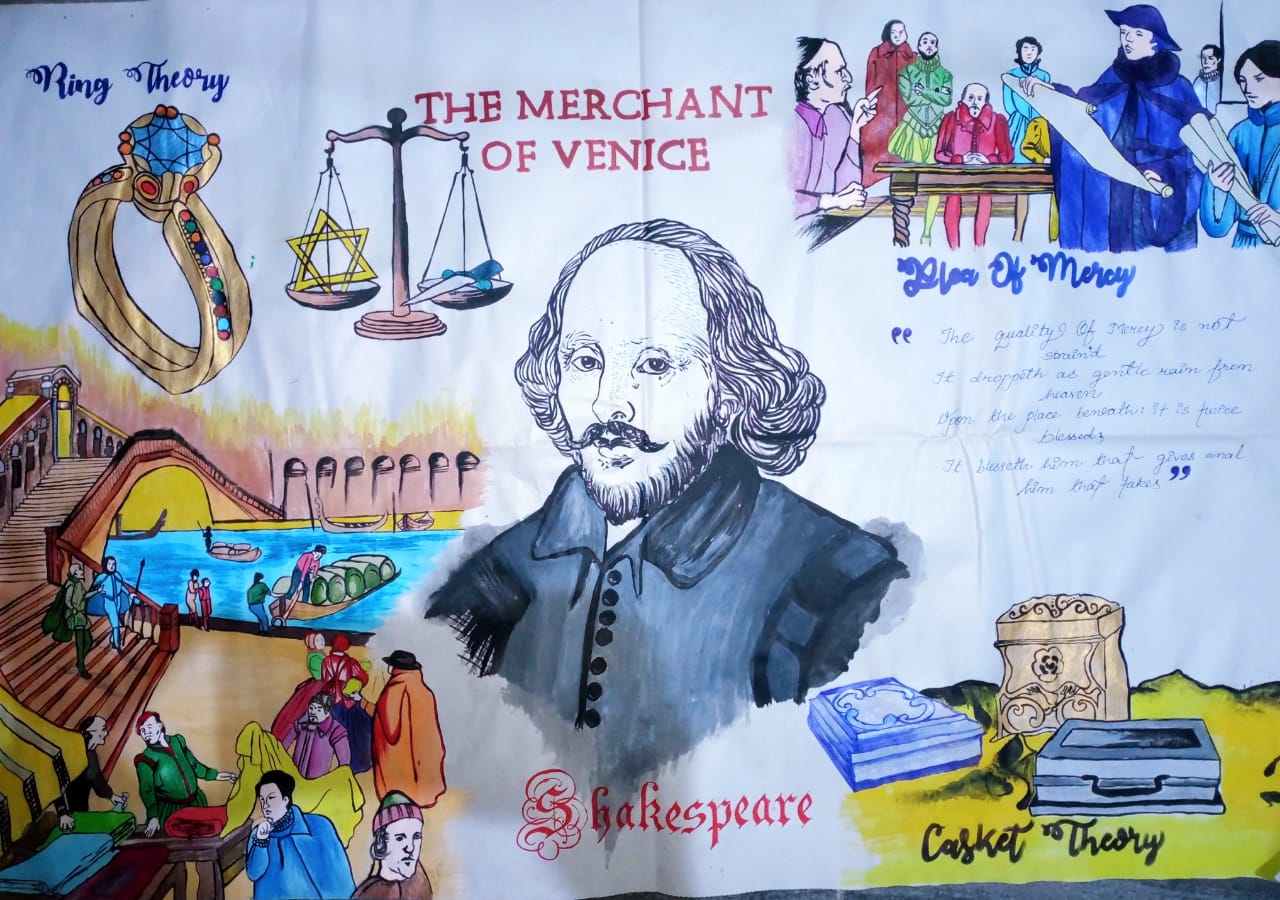 Ring Theory
THE MERCHANT
OF VENICE
Plea Of Mercy
“ The quality Of Mercy is not
strain'd
It droppeth as gentle rain from
heaven
Upon the place beneath: it is twice
blessed;
It blesseth him that gives and
him that takes ”
Shakespeare
Casket Theory